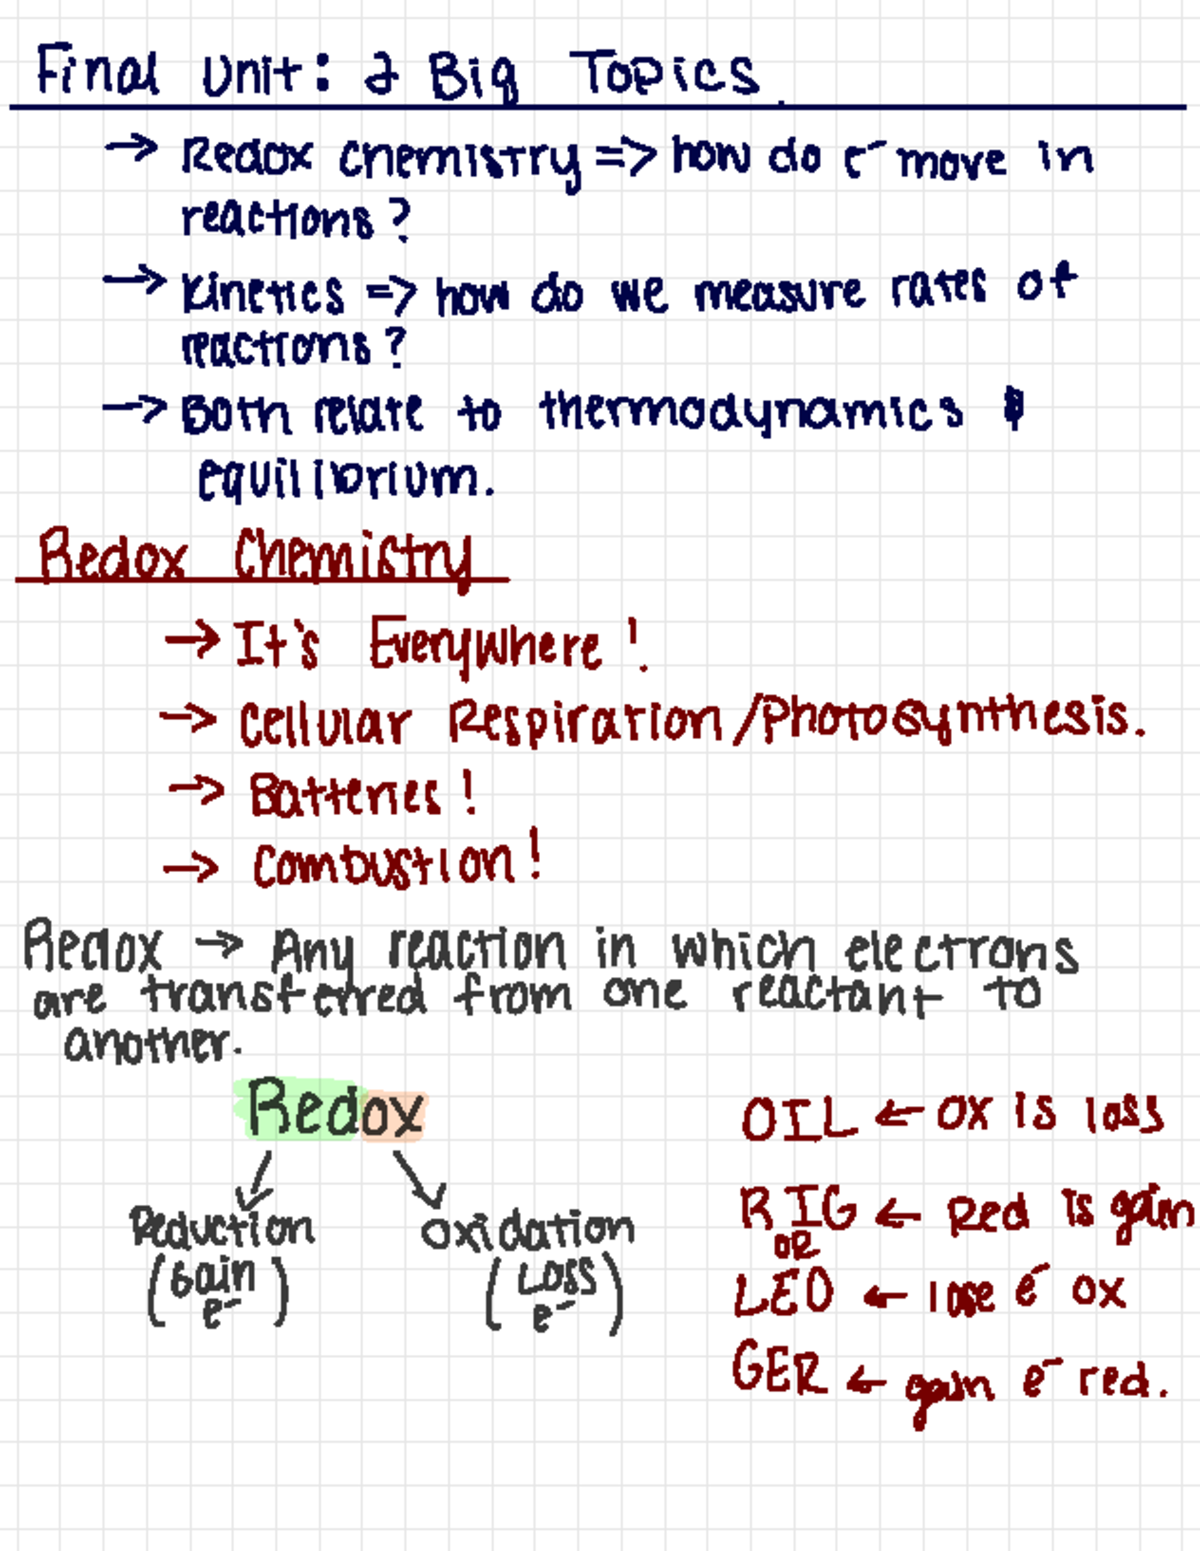 Final Unit: 2 Big Topics
→ Redox Chemistry => how do e⁻ move in
reactions?
→ Kinetics => how do we measure rates of
reactions?
→ Both relate to thermodynamics &
equilibrium.
Redox Chemistry
→ It's Everywhere!
→ Cellular Respiration/Photosynthesis.
→ Batteries!
→ Combustion!
Redox → Any reaction in which electrons
are transferred from one reactant to
another.
Redox
Reduction
(Gain e⁻)
Oxidation
(Loss e⁻)
OIL ← OX is loss
RIG ← Red is gain
OR
LEO ← lose e⁻ ox
GER ← gain e⁻ red.